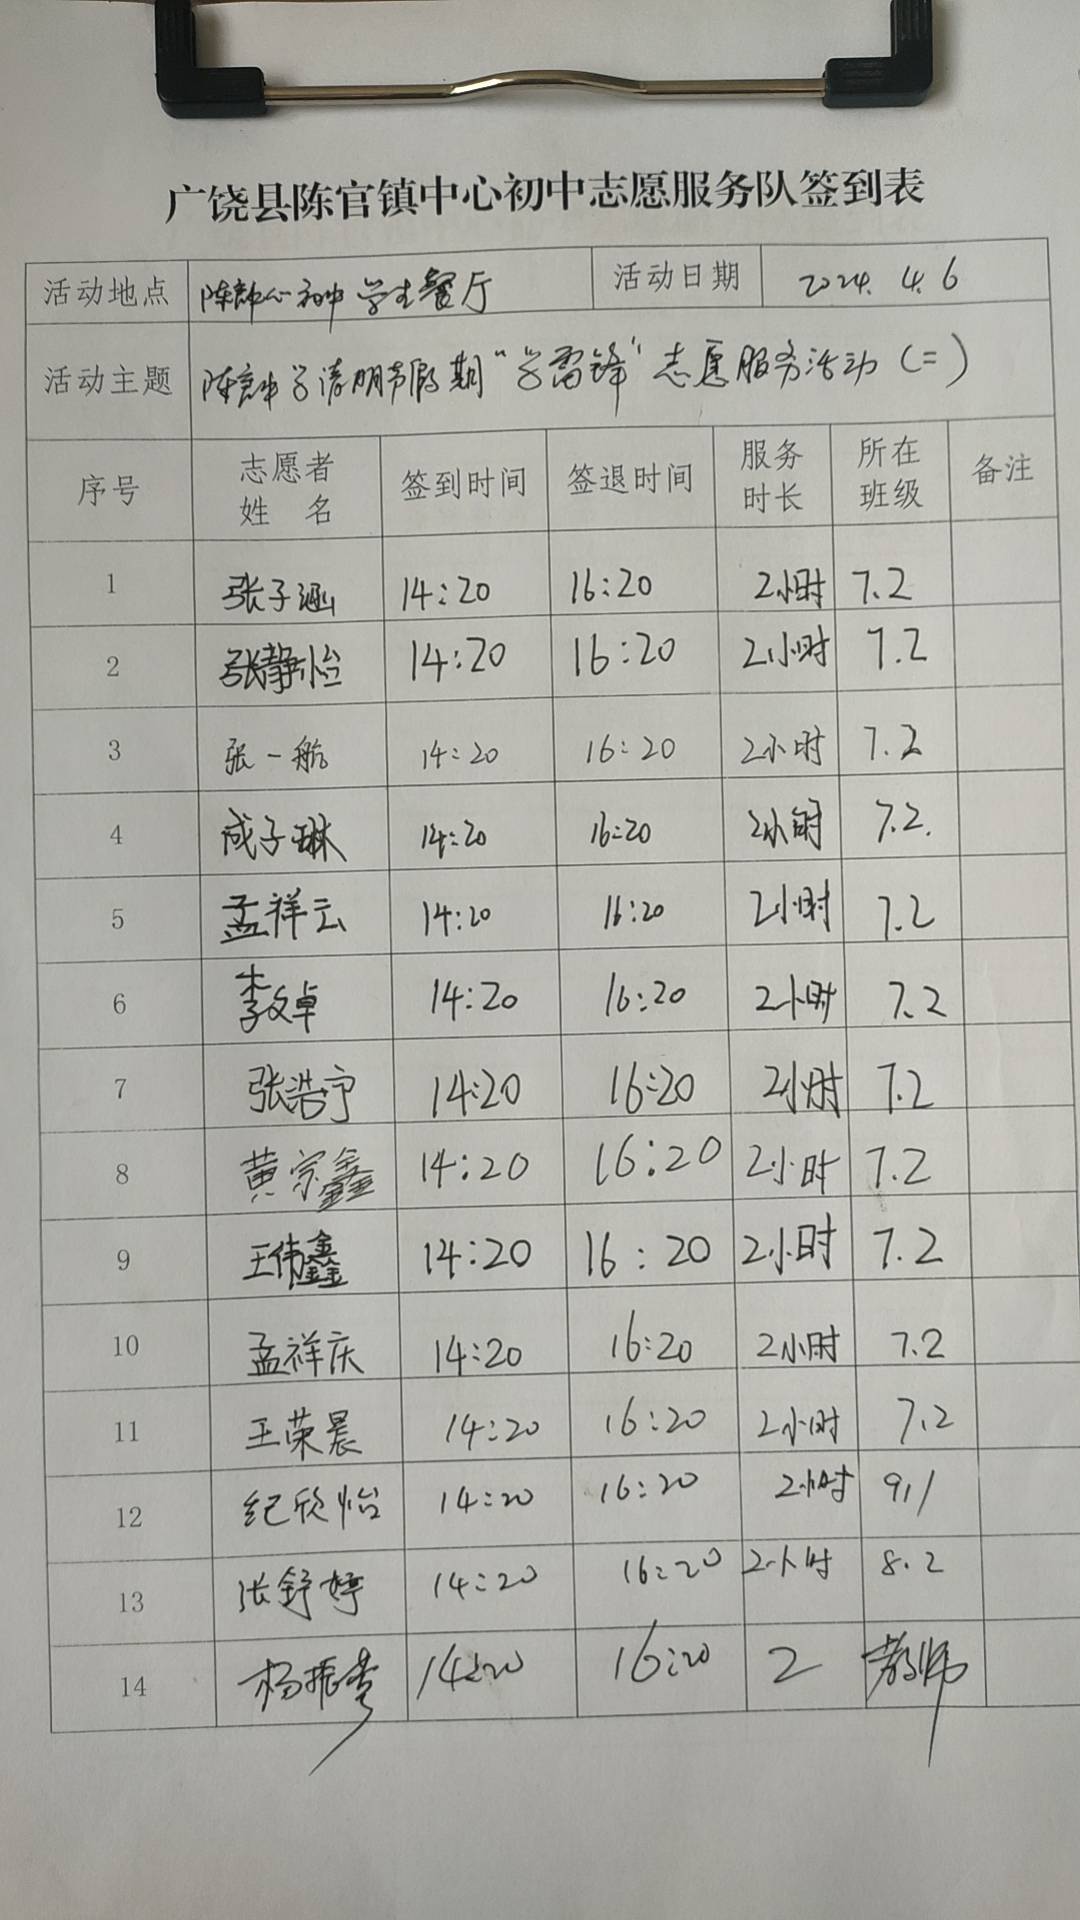 广饶县陈官镇中心初中志愿服务队签到表
活动地点 陈官中心初中学生餐厅 活动日期 2024.4.6
活动主题 陈官中学清明节假期“学雷锋”志愿服务活动(二)
序号 志愿者姓名 签到时间 签退时间 服务时长 所在班级 备注
1 张子涵 14:20 16:20 2小时 7.2
2 张静怡 14:20 16:20 2小时 7.2
3 张一航 14:20 16:20 2小时 7.2
4 成子琳 14:20 16:20 2小时 7.2.
5 孟祥云 14:20 16:20 2小时 7.2
6 李文卓 14:20 16:20 2小时 7.2
7 张浩宇 14:20 16:20 2小时 7.2
8 黄宗鑫 14:20 16:20 2小时 7.2
9 王伟鑫 14:20 16:20 2小时 7.2
10 孟祥庆 14:20 16:20 2小时 7.2
11 王荣晨 14:20 16:20 2小时 7.2
12 纪欣怡 14:20 16:20 2小时 9.1
13 张舒婷 14:20 16:20 2小时 8.2
14 杨振 14:20 16:20 2 教师